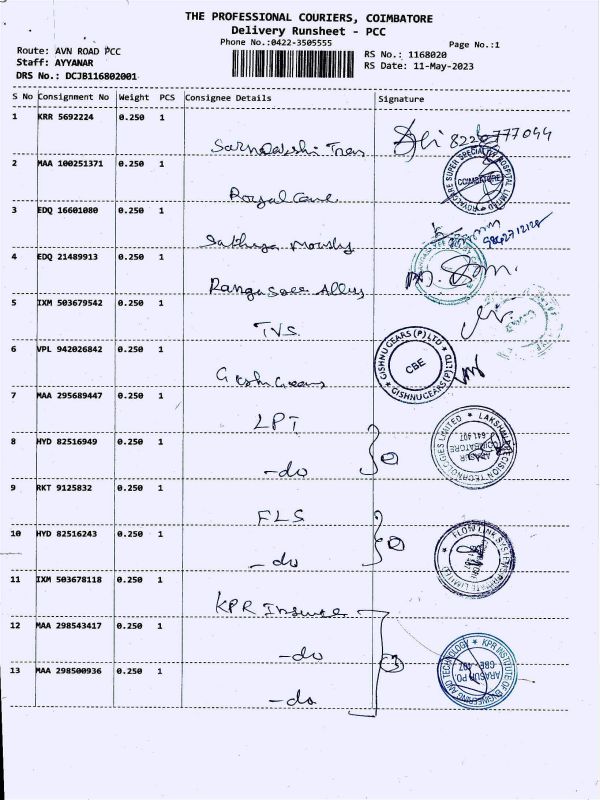 THE PROFESSIONAL COURIERS, COIMBATORE
Delivery Runsheet - PCC
Phone No.:0422-3505555
Page No.:1
Route: AVN ROAD PCC
Staff: AYYANAR
DRS No.: DCJB116802001
RS No.: 1168020
RS Date: 11-May-2023
S No Consignment No Weight PCS Consignee Details Signature
1 KRR 5692224 0.250 1
777044
2 MAA 100251371 0.250 1 Royal Care
ROYALCARE SUPER SPECIALITY HOSPITAL LIMITED
COIMBATORE
3 EDQ 16601080 0.250 1
4 EDQ 21489913 0.250 1
5 IXM 503679542 0.250 1 TVS
6 VPL 942026842 0.250 1
GISHNU GEARS (P) LTD ★ GISHNU GEARS (P) LTD ★
CBE
7 MAA 295689447 0.250 1 LPT
LAKSHMI PRECISION TECHNOLOGIES LIMITED
COIMBATORE
641 407
8 HYD 82516949 0.250 1 -do
9 RKT 9125832 0.250 1 FLS
10 HYD 82516243 0.250 1 -do
FLOW LINK SYSTEMS PRIVATE LIMITED
11 IXM 503678118 0.250 1 KPR
12 MAA 298543417 0.250 1 -do
KPR INSTITUTE OF ENGINEERING AND TECHNOLOGY
ARASUR PO
CBE - 407
13 MAA 298500936 0.250 1 -do